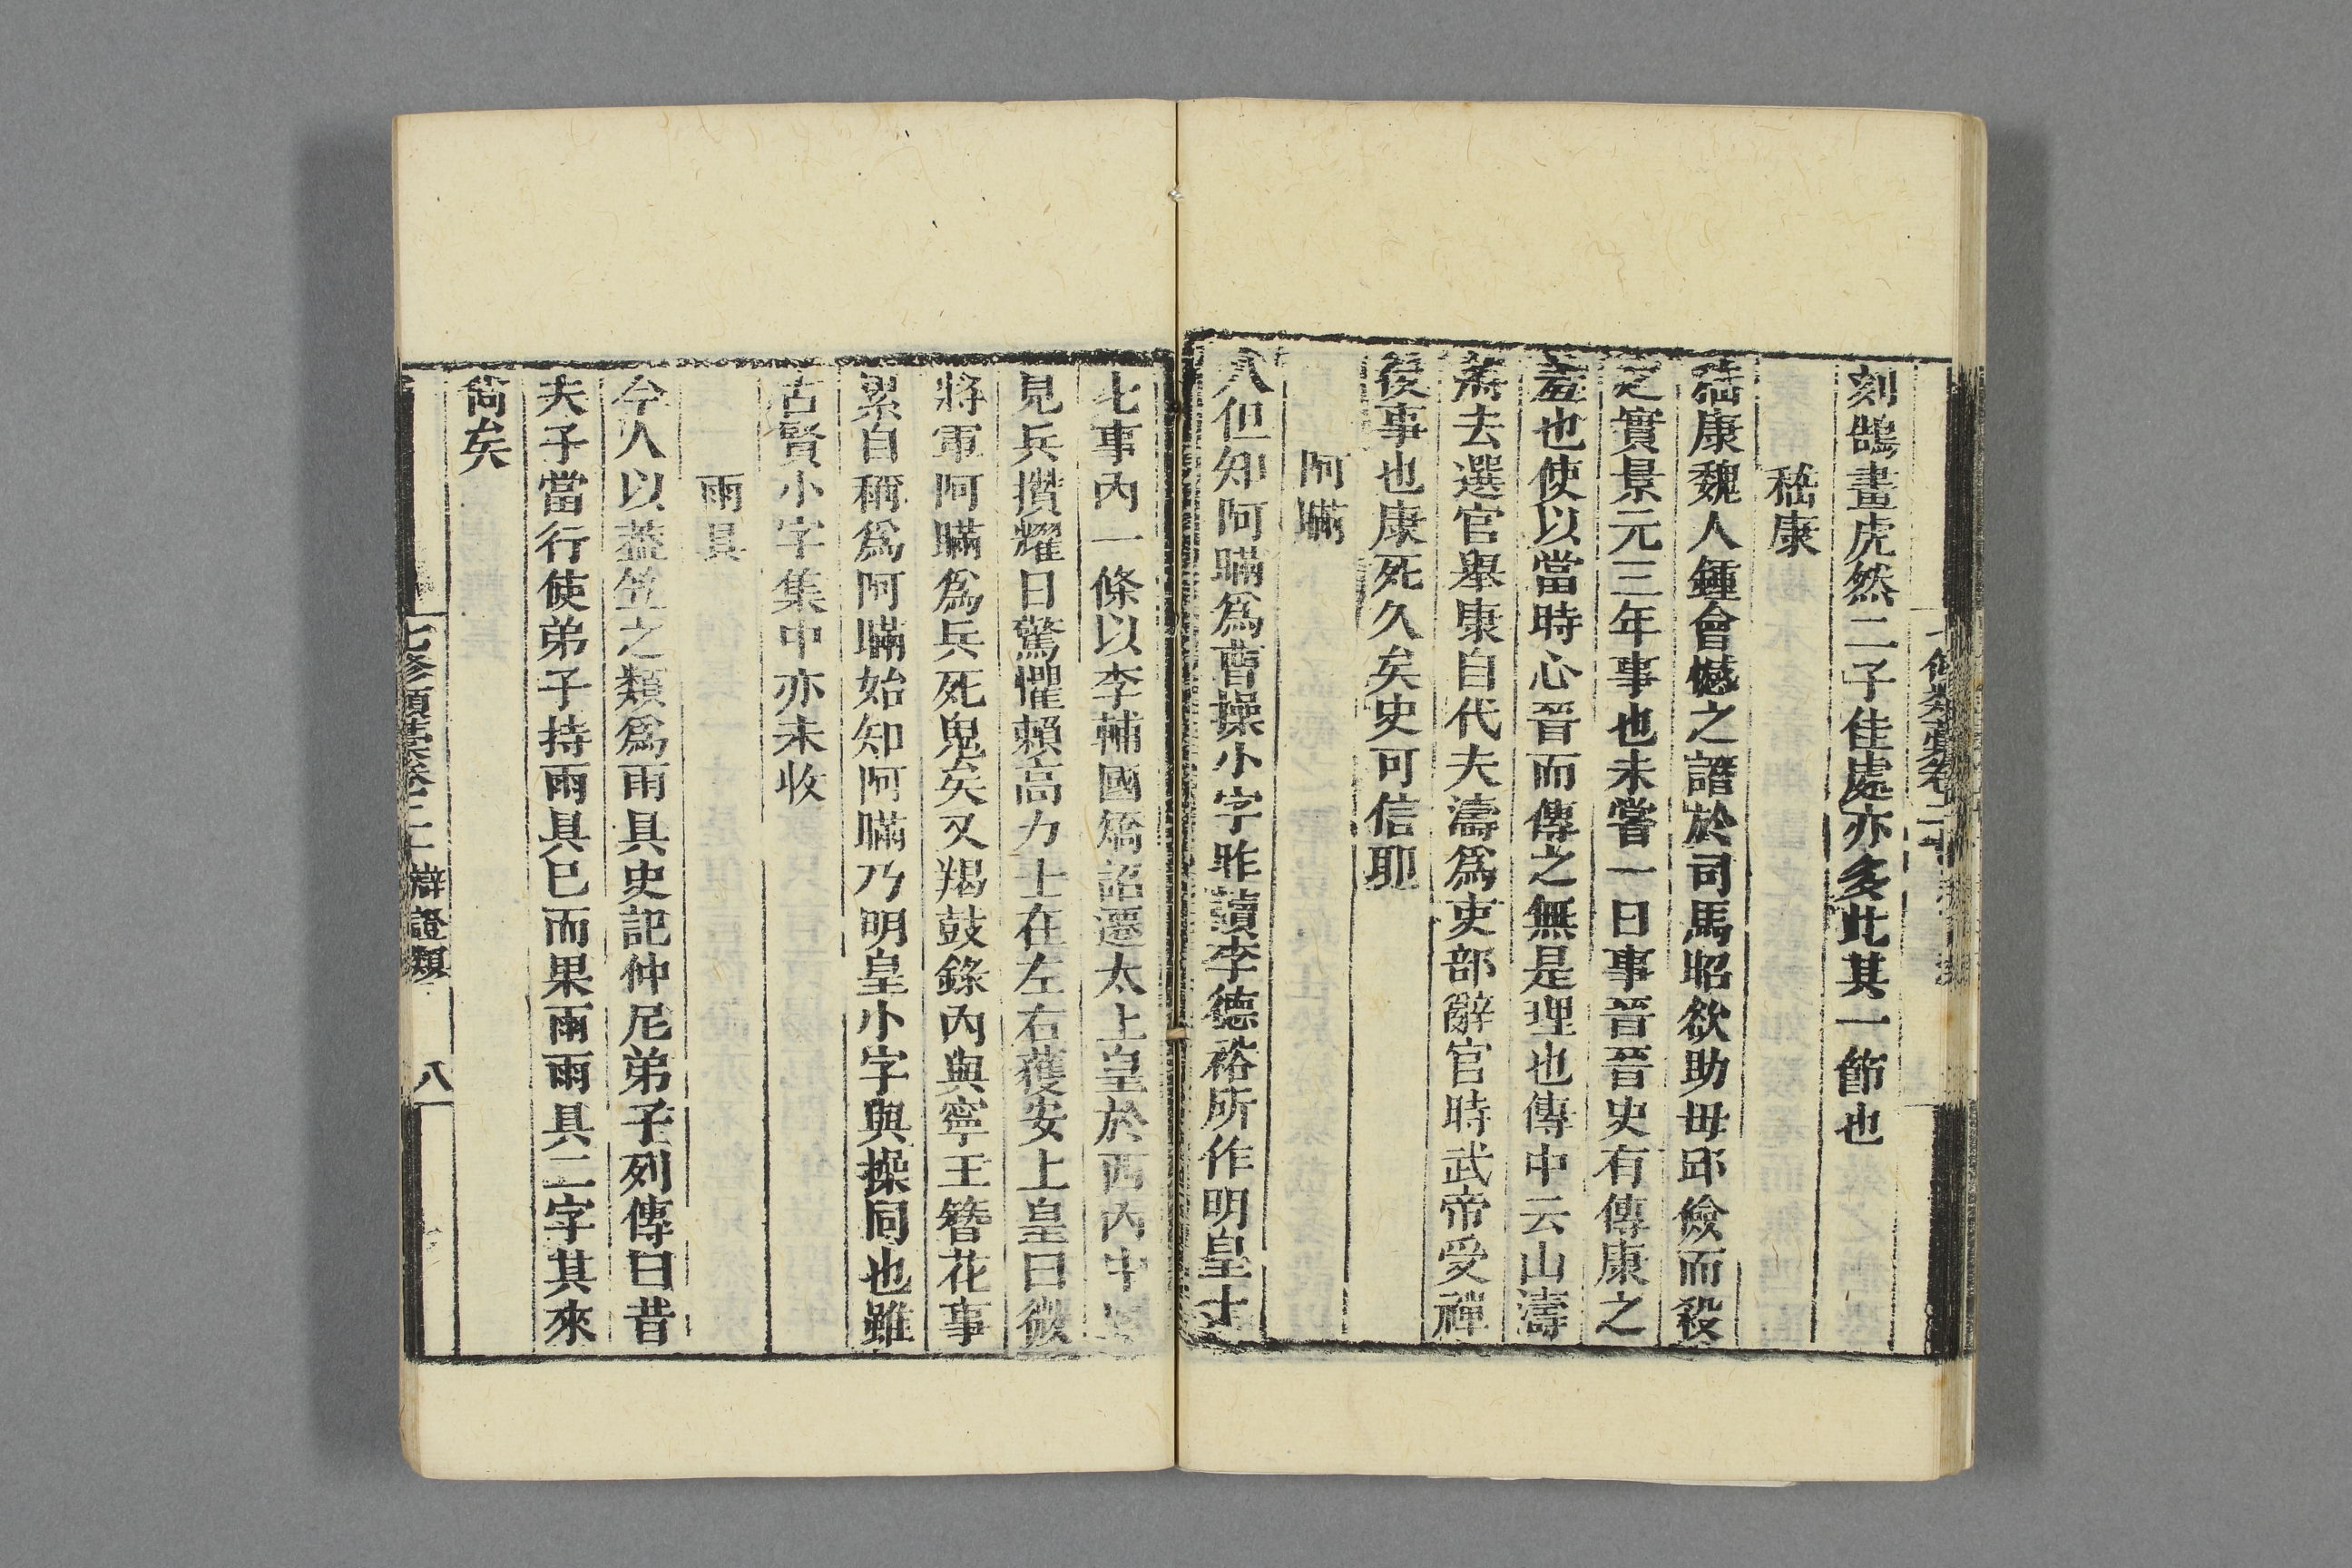 刻鵠畫虎然二子佳處亦多此其一節也
嵇康
嵇康魏人鍾會憾之譖於司馬昭欲助毋邱儉而殺
之實景元三年事也未嘗一日事晉晉史有傳康之
羞也使以當時心晉而傳之無是理也傳中云山濤
將去選官舉康自代夫濤爲吏部辭官時武帝受禪
後事也康死久矣史可信耶
阿瞞
人但知阿瞞爲曹操小字昨讀李德裕所作明皇十
七事內一條以李輔國矯詔遷太上皇於西內中
見兵攢耀日驚懼賴高力士在左右獲安上皇曰微
將軍阿瞞爲兵死鬼矣又羯鼓錄內與寧王簪花事
累自稱爲阿瞞始知阿瞞乃明皇小字與操同也雖
古賢小字集中亦未收
雨具
今人以蓋笠之類爲雨具史記仲尼弟子列傳曰昔
夫子當行使弟子持雨具已而果雨雨具二字其來
尚矣
七修類藁卷二十 辯證類 八